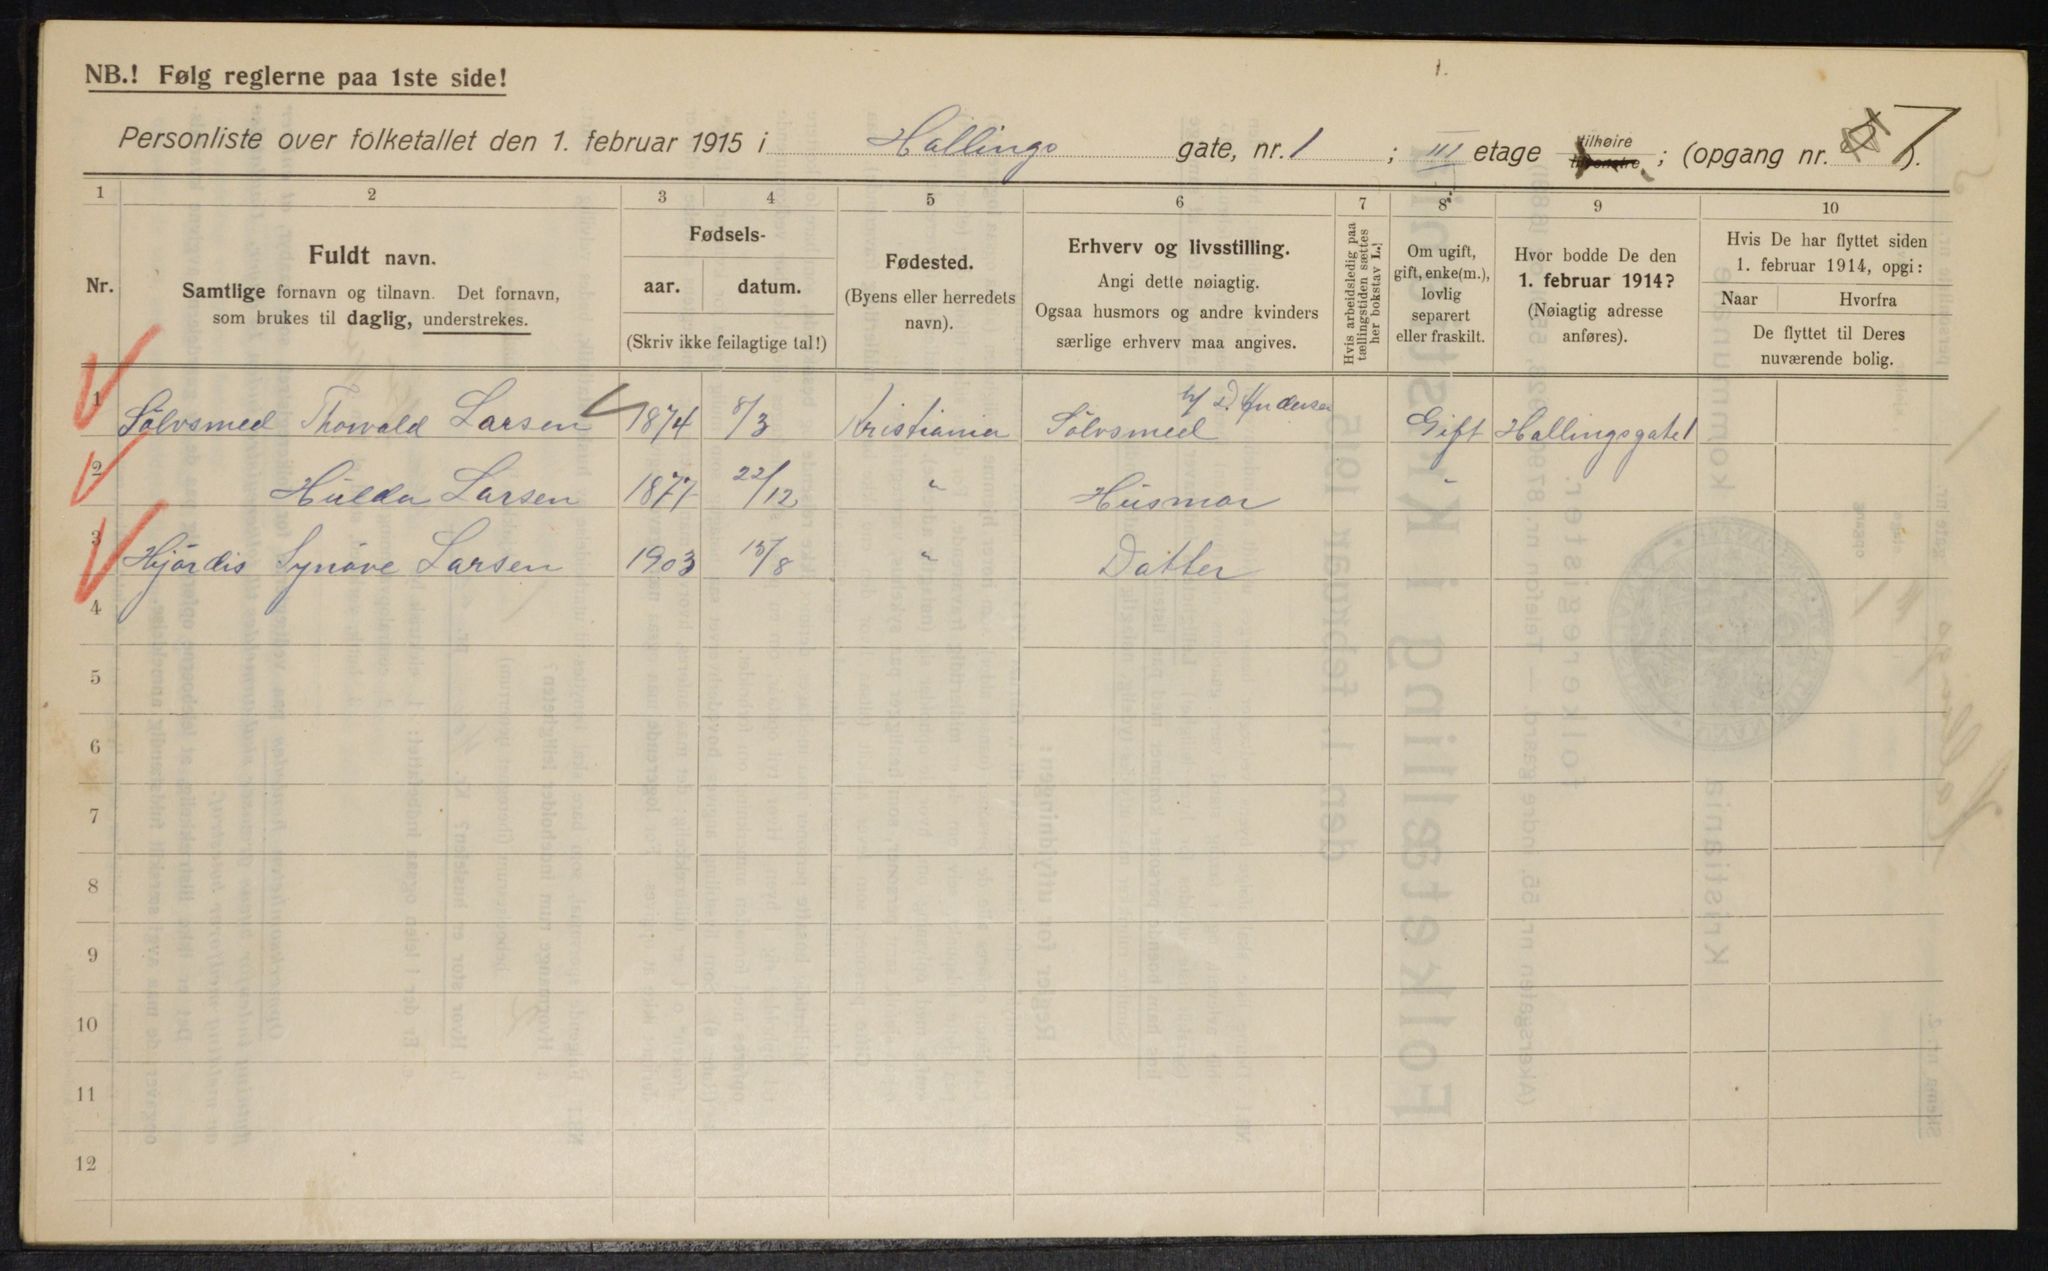 1.
NB.! Følg reglerne paa 1ste side!
Personliste over folketallet den 1. februar 1915 i Hallings gate, nr. 1 ; III etage tilhøire tilvenstre ; (opgang nr. 7).
1 2 3 4 5 6 7 8 9 10
Nr.
Fuldt navn.
Samtlige fornavn og tilnavn. Det fornavn,
som brukes til daglig, understrekes.
Fødsels-
aar. datum.
(Skriv ikke feilagtige tal!)
Fødested.
(Byens eller herredets
navn).
Erhverv og livsstilling.
Angi dette nøiagtig.
Ogsaa husmors og andre kvinders
særlige erhverv maa angives.
Hvis arbeidsledig paa
tællingstiden sættes
her bokstav L.!
Om ugift,
gift, enke(m.),
lovlig
separert
eller fraskilt.
Hvor bodde De den
1. februar 1914?
(Nøiagtig adresse
anføres).
Hvis De har flyttet siden
1. februar 1914, opgi:
Naar Hvorfra
De flyttet til Deres
nuværende bolig.
1 Sölvsmed Thorvald Larsen 1874 8/3 Kristiania Sölvsmed h/ D. Andersen Gift Hallingsgate 1
2 Hulda Larsen 1877 22/12 " Husmor "
3 Hjördis Synöve Larsen 1903 15/8 " Datter
4
5
6
7
8
9
10
11
12